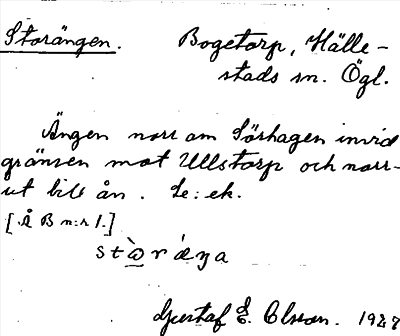 Storängen. Bogetorp, Hälle-
stads sn. Ögl.
Ängen norr om Sörhagen invid
gränsen mot Ullstorp och norr-
ut till ån. Le: ek.
[Å B n:r 1.]
stɷ̀ràŋa
Gustaf E. Olsson. 1927